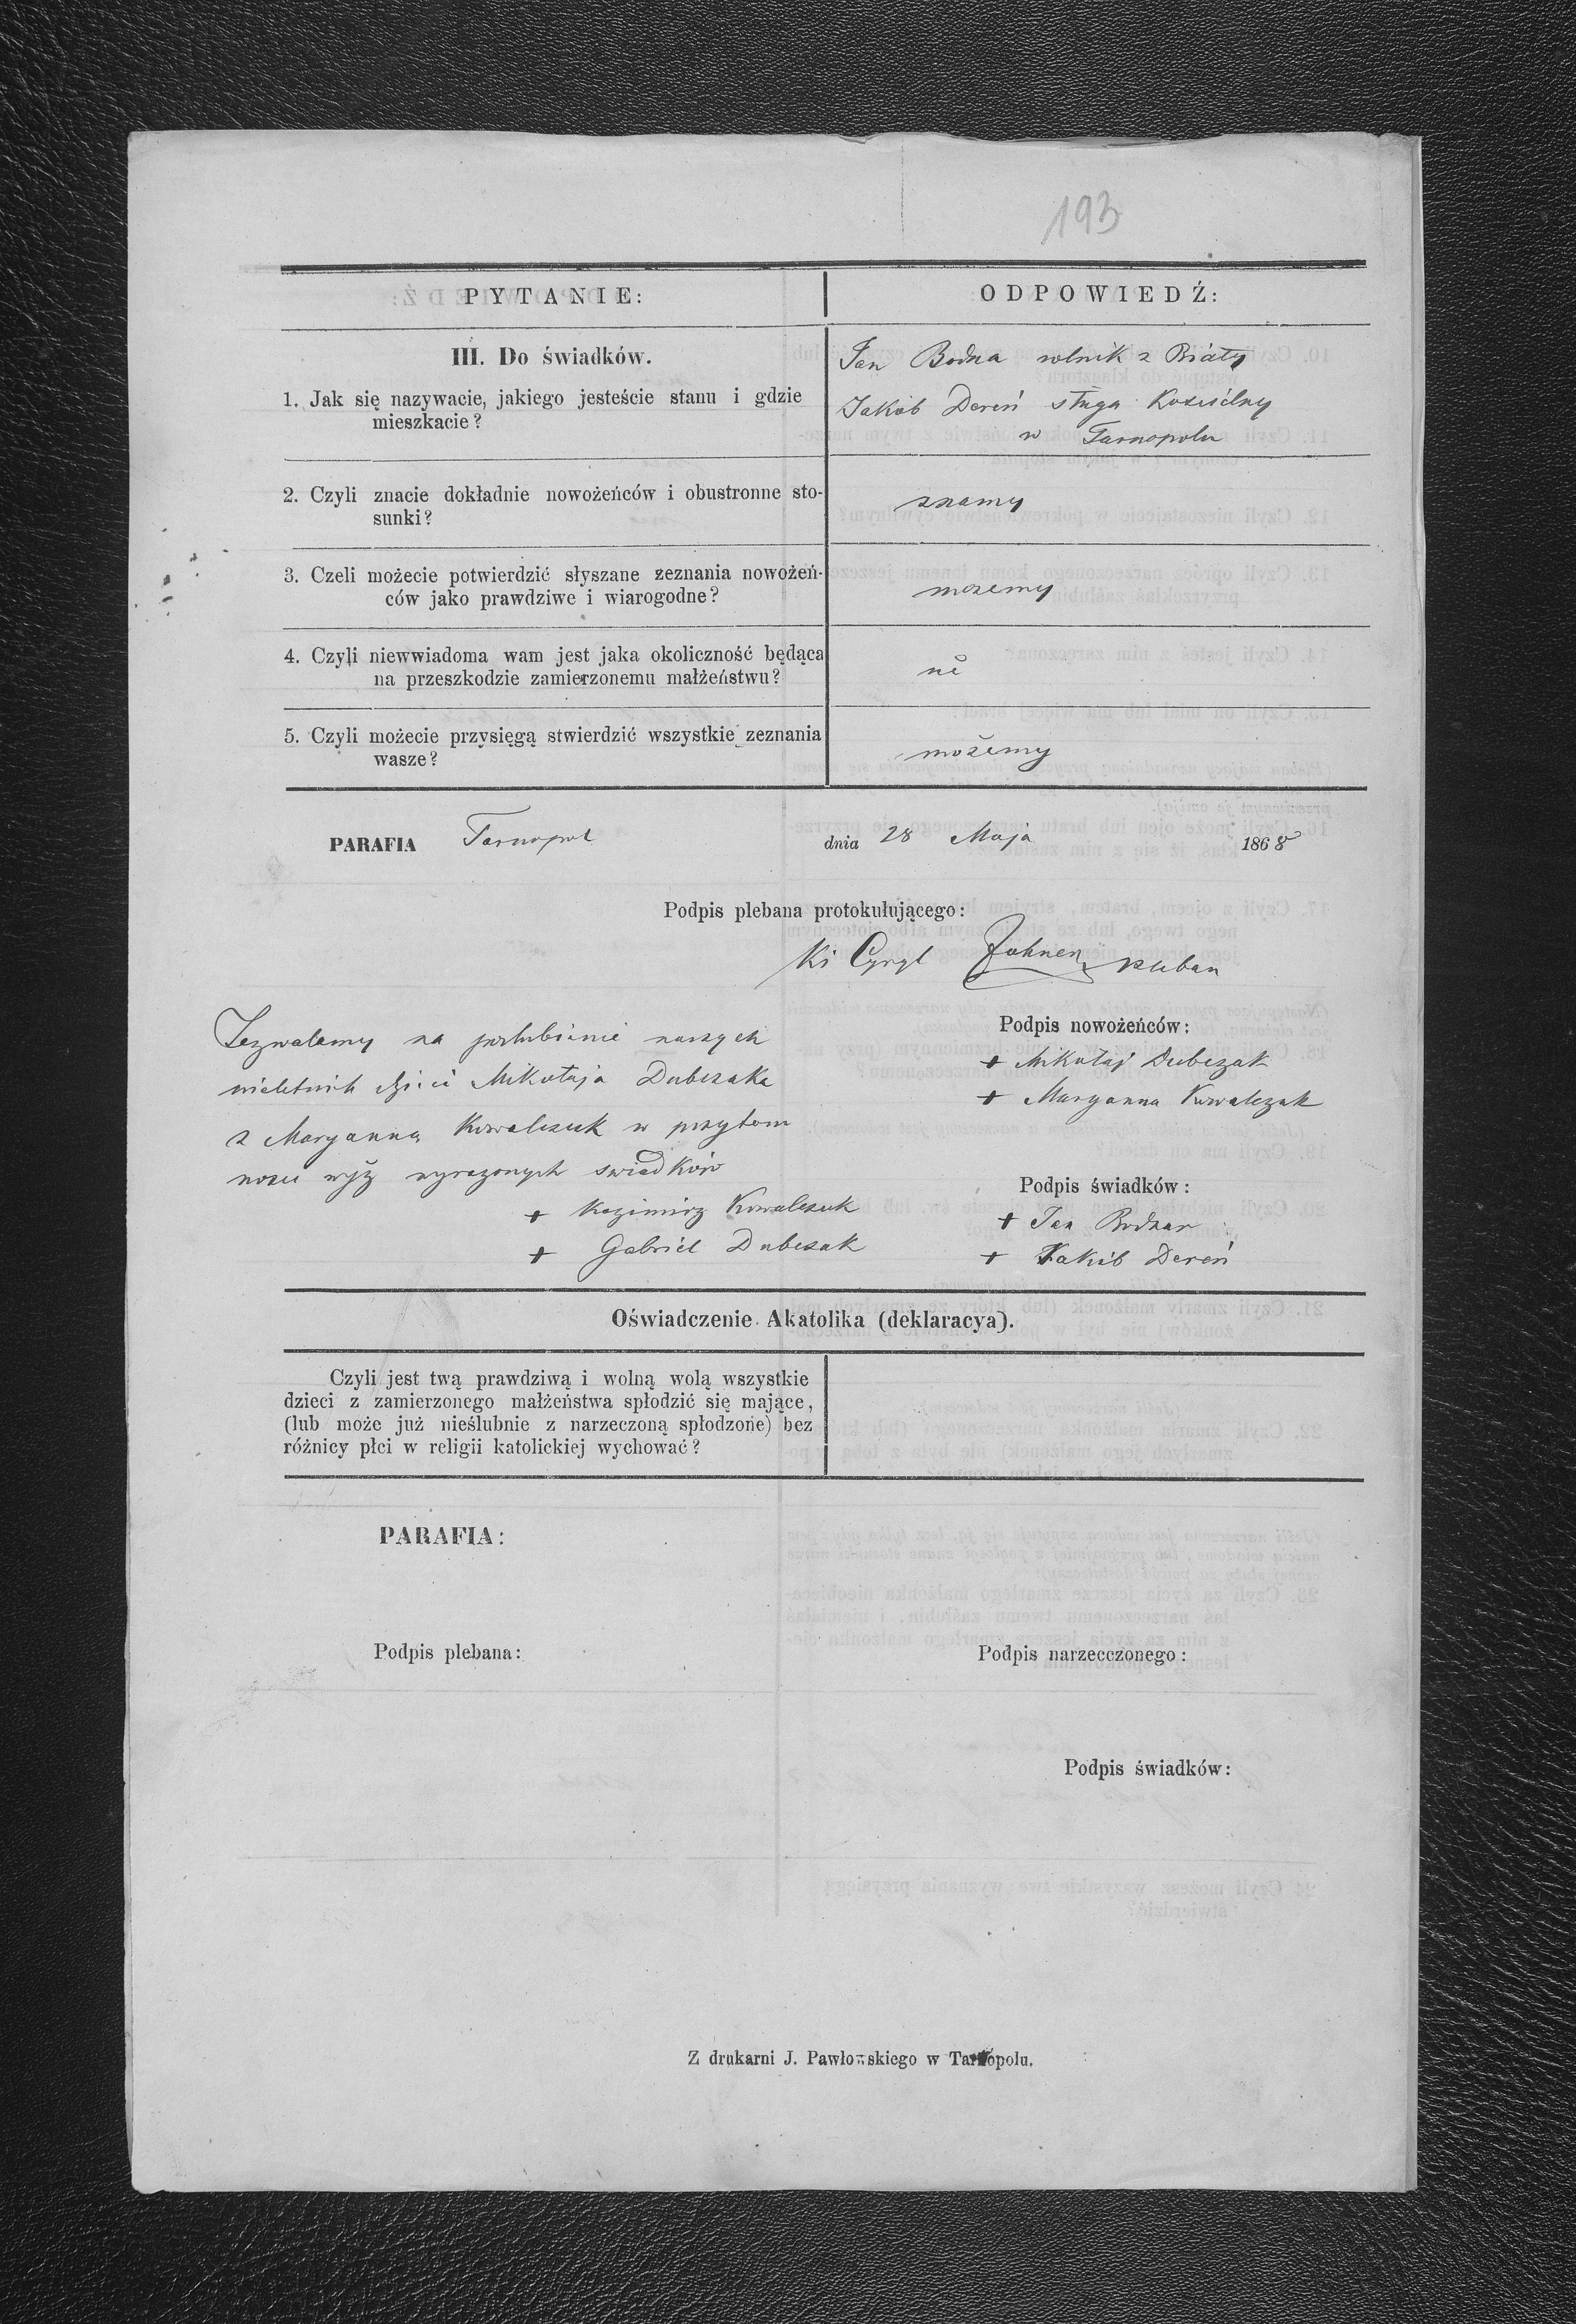 193
PYTANIE:
ODPOWIEDŹ:
III. Do świadków.
1. Jak się nazywacie, jakiego jesteście stanu i gdzie
mieszkacie?
Jan Bodna rolnik z Biały
Jakób Dereń sługa Kościelny
w Tarnopolu
2. Czyli znacie dokładnie nowożeńców i obustronne sto-
sunki?
znamy
3. Czeli możecie potwierdzić słyszane zeznania nowożeń-
ców jako prawdziwe i wiarogodne?
mozemy
4. Czyli niewwiadoma wam jest jaka okoliczność będąca
na przeszkodzie zamierzonemu małżeństwu?
nie
5. Czyli możecie przysięgą stwierdzić wszystkie zeznania
wasze?
możemy
PARAFIA Tarnopol dnia 28 Maja 1868
Podpis plebana protokułującego:
Cyryl pleban
Zezwalamy na poslubienie naszych
nieletnich dzieci Mikołaja Dubczaka
z Maryanną Kowalczuk w przytom
nosci wyż wyrazonych swiadków
+ Kazimirz Kowalczuk
+ Gabriel Dubczak
Podpis nowożeńców:
+ Mikołaj Dubczak
+ Maryanna Kowalczuk
Podpis świadków:
+ Jan Bodnar
+ Jakób Dereń
Oświadczenie Akatolika (deklaracya).
Czyli jest twą prawdziwą i wolną wolą wszystkie
dzieci z zamierzonego małżeństwa spłodzić się mające,
(lub może już nieślubnie z narzeczoną spłodzone) bez
różnicy płci w religii katolickiej wychować?
PARAFIA:
Podpis plebana:
Podpis narzecczonego:
Podpis świadków:
Z drukarni J. Pawłowskiego w Tarnopolu.